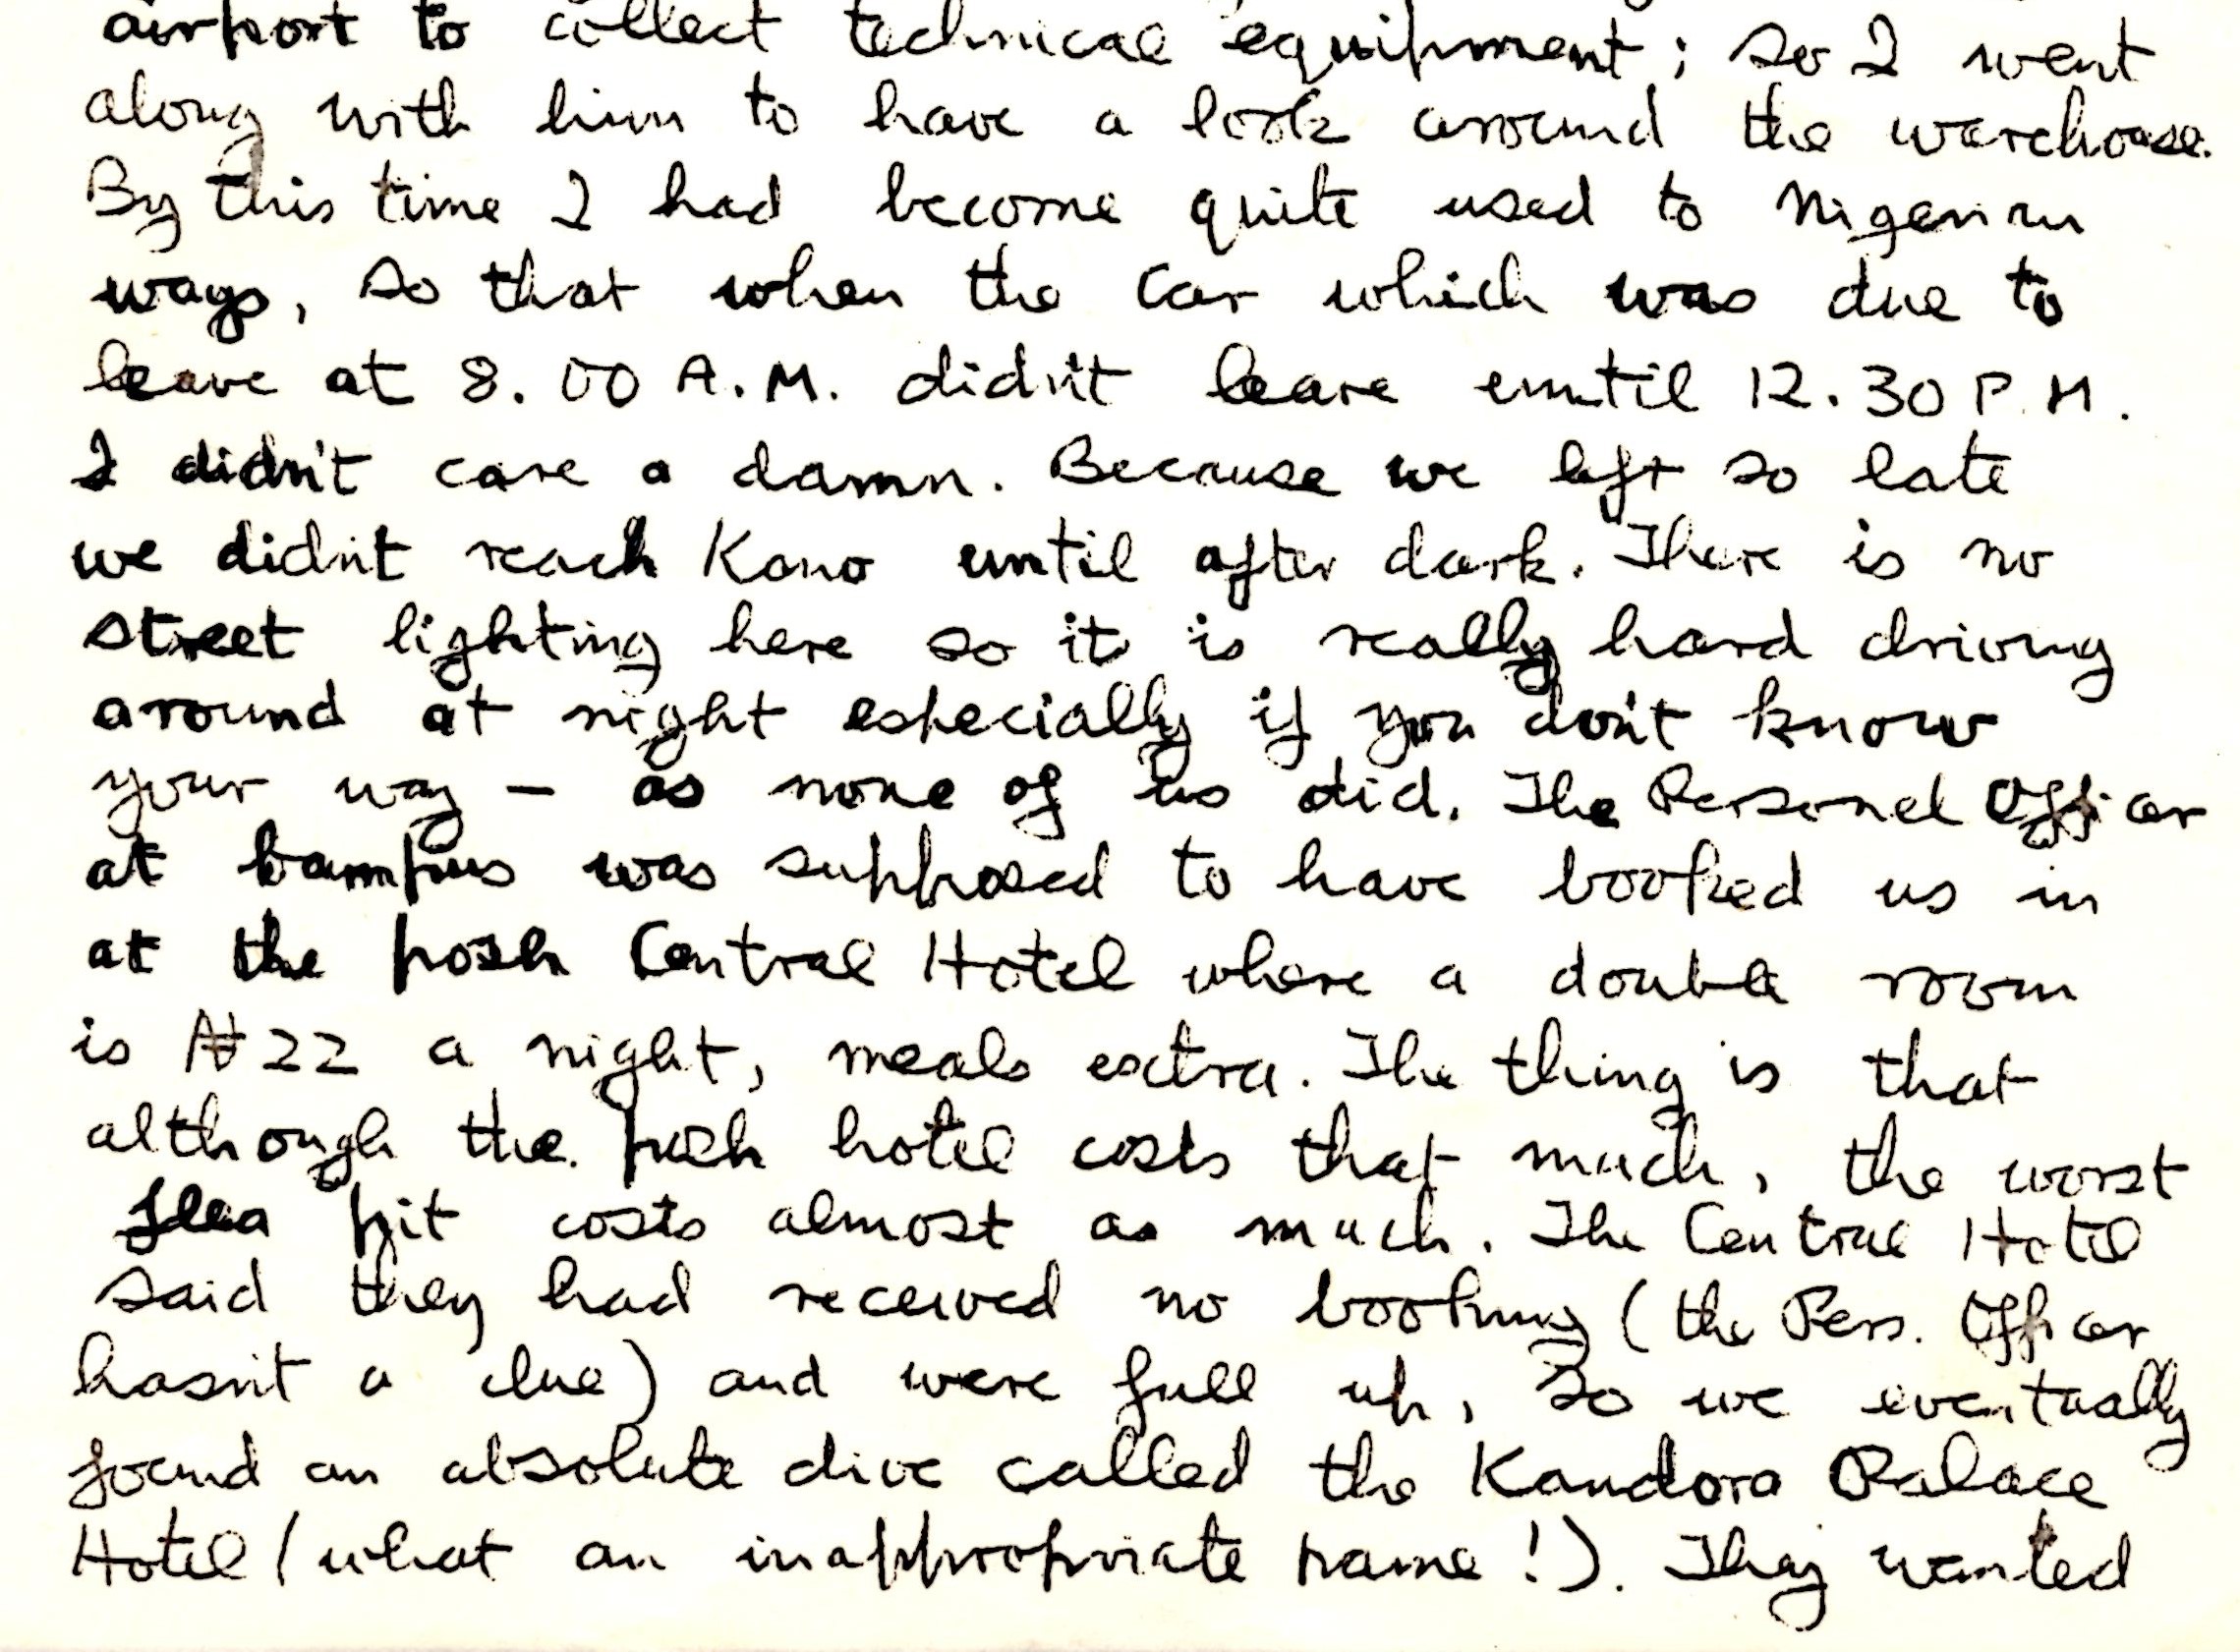 airport to collect technical equipment; so I went
along with him to have a look around the warehouse.
By this time I had become quite used to Nigerian
ways, so that when the car which was due to
leave at 8.00 A.M. didn't leave until 12.30 P.M.
I didn't care a damn. Because we left so late
we didn't reach Kano until after dark. There is no
street lighting here so it is really hard driving
around at night especially if you don't know
your way – as none of us did. The Personel Officer
at was supposed to have booked us in
at the posh Central Hotel where a double room
is ₦22 a night, meals extra. The thing is that
although the posh hotel costs that much, the worst
flea pit costs almost as much. The Central Hotel
said they had received no booking (the Pers. Officer
hasn't a clue) and were full up, so we eventually
found an absolute dive called the Kandora Palace
Hotel (what an inappropriate name!). They wanted